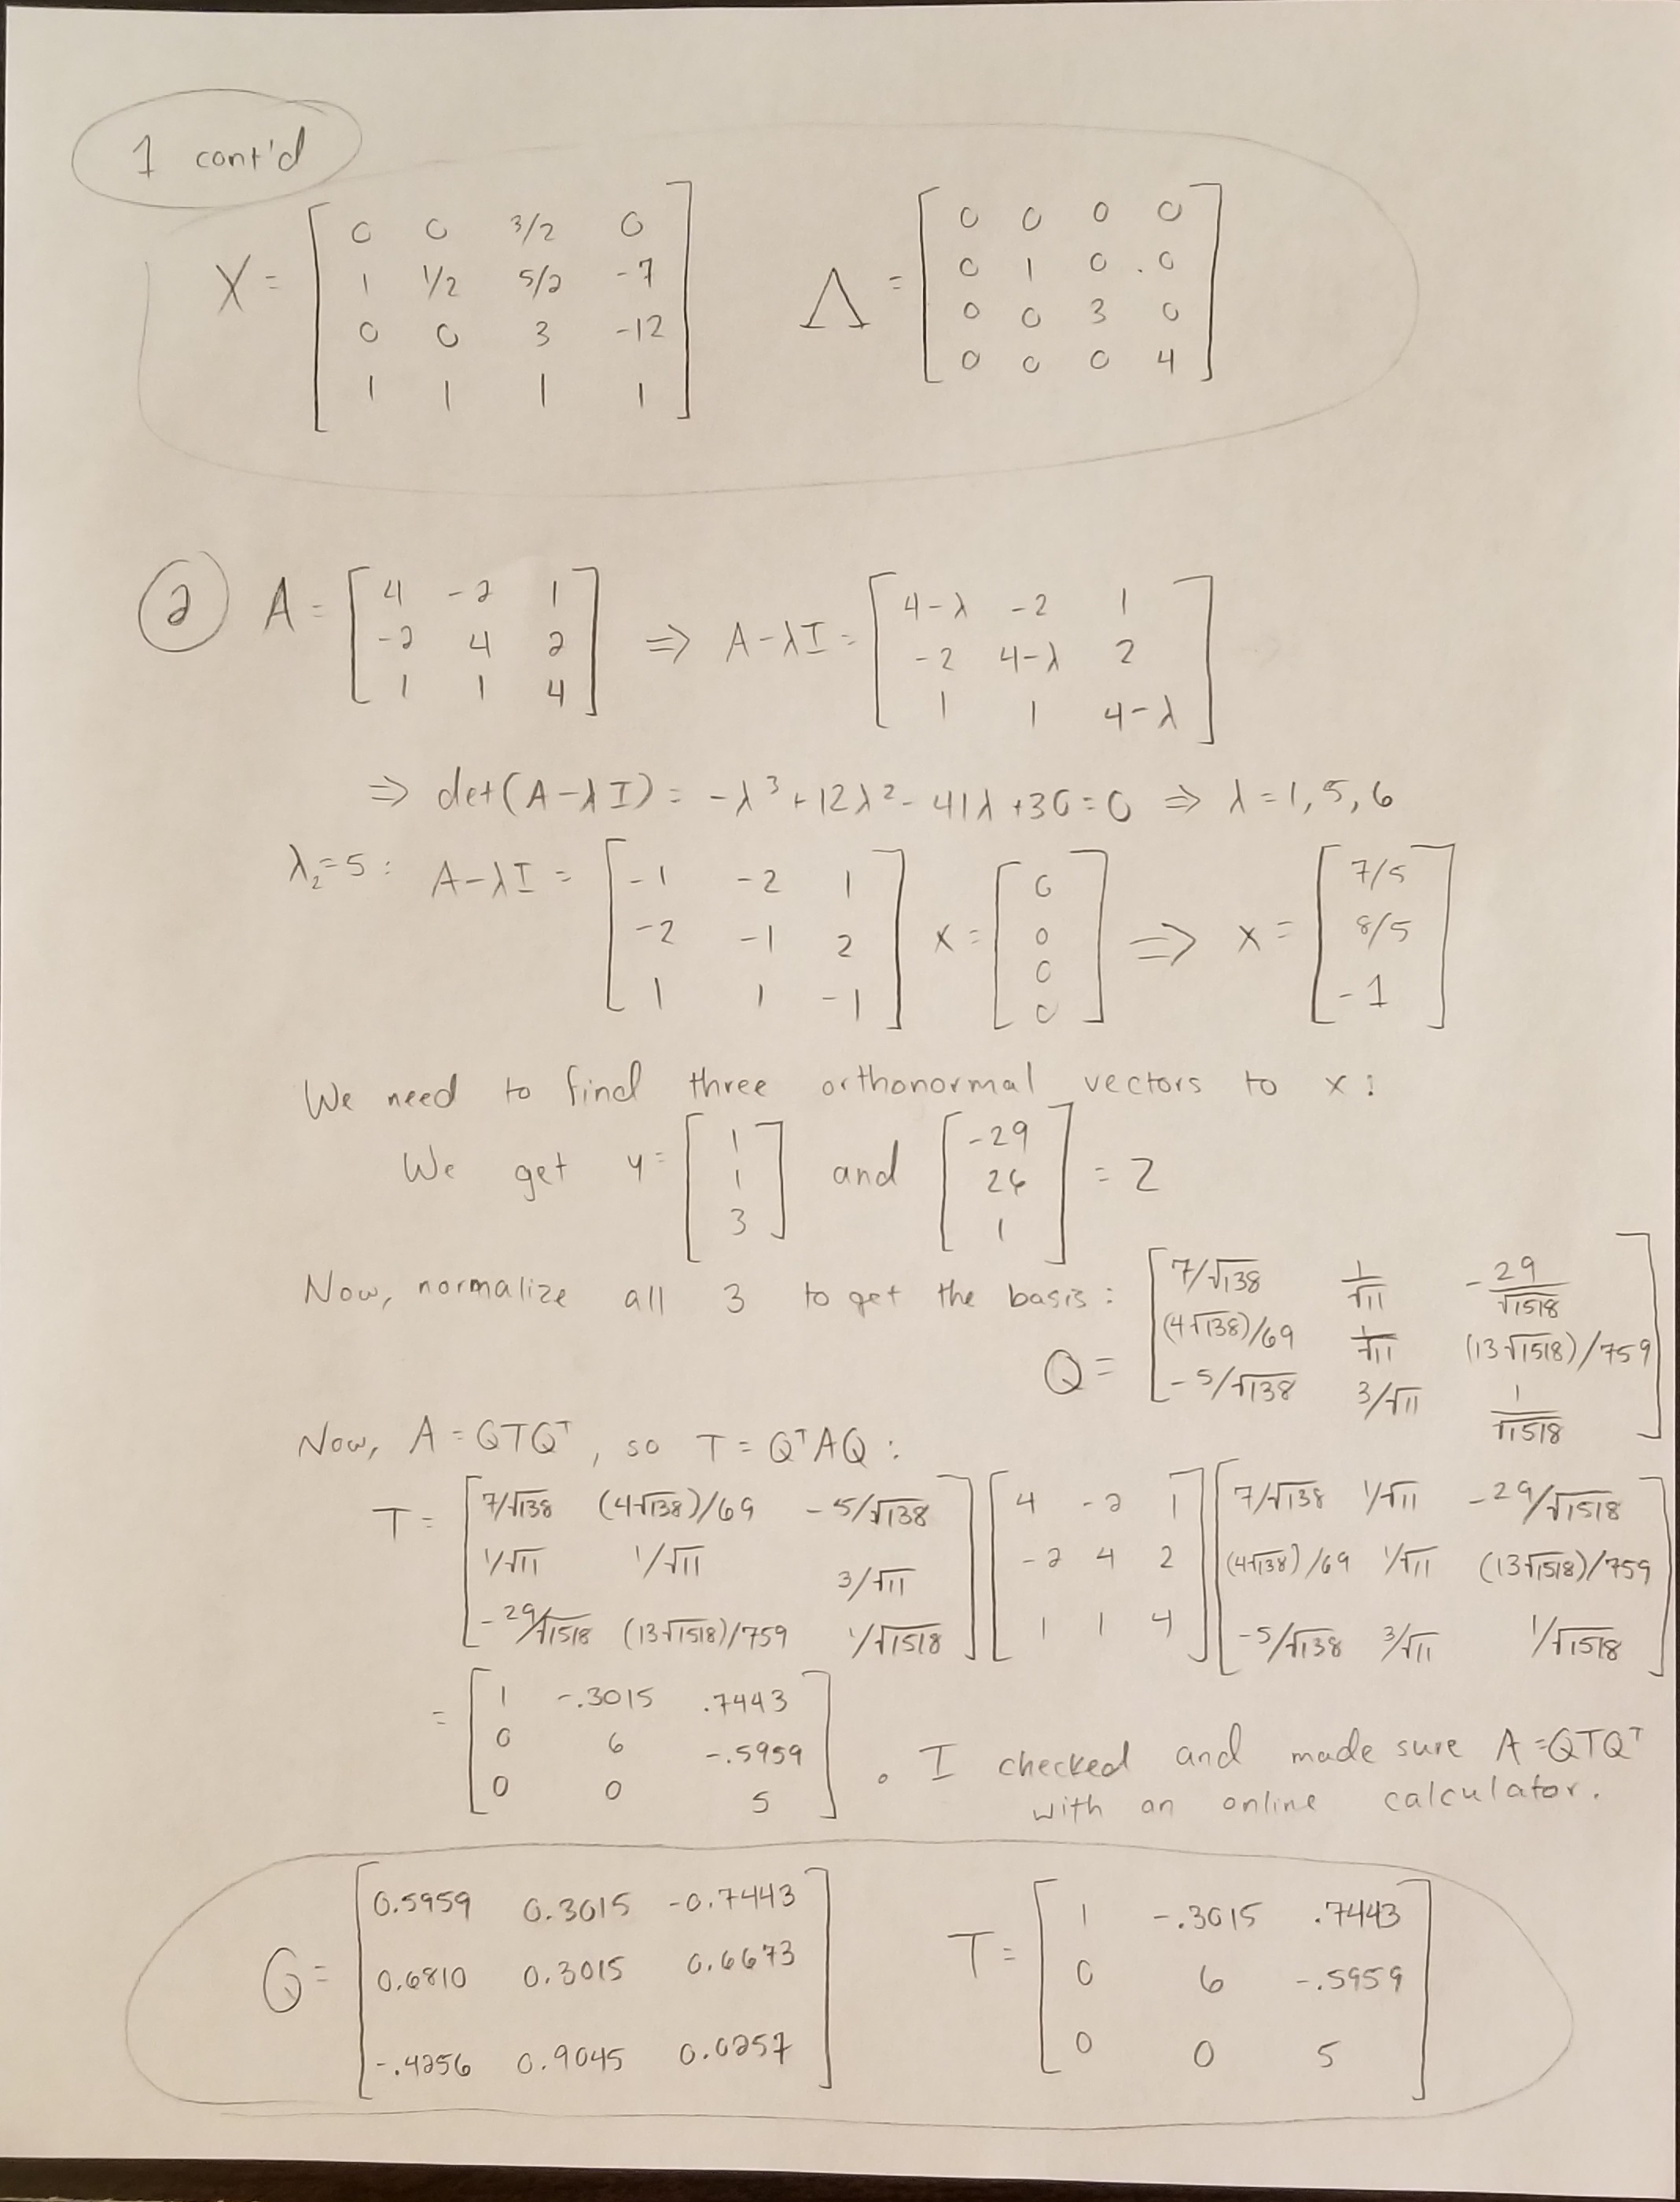 1 cont'd
X = [ 0 0 3/2 0 ; 1 1/2 5/2 -7 ; 0 0 3 -12 ; 1 1 1 1 ] Λ = [ 0 0 0 0 ; 0 1 0 0 ; 0 0 3 0 ; 0 0 0 4 ]
2 A = [ 4 -2 1 ; -2 4 2 ; 1 1 4 ] ⇒ A-λI = [ 4-λ -2 1 ; -2 4-λ 2 ; 1 1 4-λ ]
⇒ det(A-λI) = -λ³+12λ²-41λ+30=0 ⇒ λ=1,5,6
λ₂=5: A-λI = [ -1 -2 1 ; -2 -1 2 ; 1 1 -1 ] x = [ 0 ; 0 ; 0 ; 0 ] ⇒ x = [ 7/5 ; 8/5 ; -1 ]
We need to find three orthonormal vectors to x:
We get y = [ 1 ; 1 ; 3 ] and [ -29 ; 26 ; 1 ] = z
Now, normalize all 3 to get the basis:
Q = [ 7/√138 1/√11 -29/√1518 ; (4√138)/69 1/√11 (13√1518)/759 ; -5/√138 3/√11 1/√1518 ]
Now, A = QTQᵀ, so T = QᵀAQ:
T = [ 7/√138 (4√138)/69 -5/√138 ; 1/√11 1/√11 3/√11 ; -29/√1518 (13√1518)/759 1/√1518 ] [ 4 -2 1 ; -2 4 2 ; 1 1 4 ] [ 7/√138 1/√11 -29/√1518 ; (4√138)/69 1/√11 (13√1518)/759 ; -5/√138 3/√11 1/√1518 ]
= [ 1 -.3015 .7443 ; 0 6 -.5959 ; 0 0 5 ] . I checked and made sure A=QTQᵀ
with an online calculator.
Q = [ 0.5959 0.3015 -0.7443 ; 0.6810 0.3015 0.6673 ; -.4256 0.9045 0.0257 ] T = [ 1 -.3015 .7443 ; 0 6 -.5959 ; 0 0 5 ]